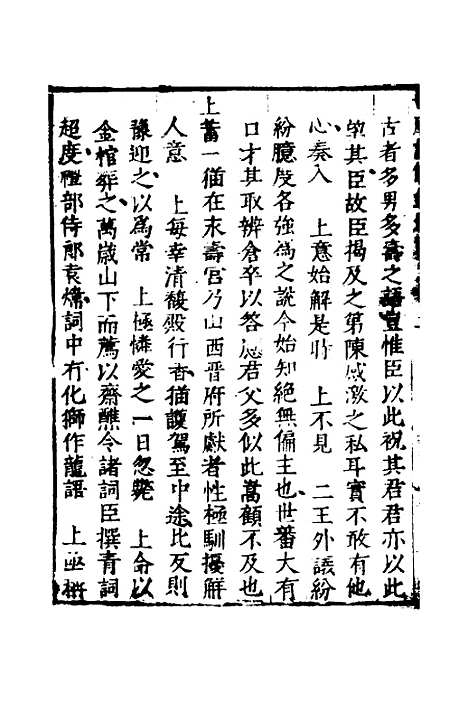 古者多男多壽之語豈惟臣以此祝其君君亦以此
望其臣故臣揭及之第陳感激之私耳實不敢有他
心奏入　上意始解是時　上不見　二王外議紛
紛臆度各強為之說今始知絕無偏主也世蕃大有
口才其取辨倉卒以答應君父多似此嵩顧不及也
上蓄一猫在永壽宮乃山西晉府所獻者性極馴擾解
人意　上每幸清馥殿行香猫護駕至中途比反則
豫迎之以爲常　上極憐愛之一日忽斃　上命以
金棺葬之萬歲山下而薦以齋醮令諸詞臣撰青詞
超度禮部侍郎袁煒詞中有化獅作龍語　上亟